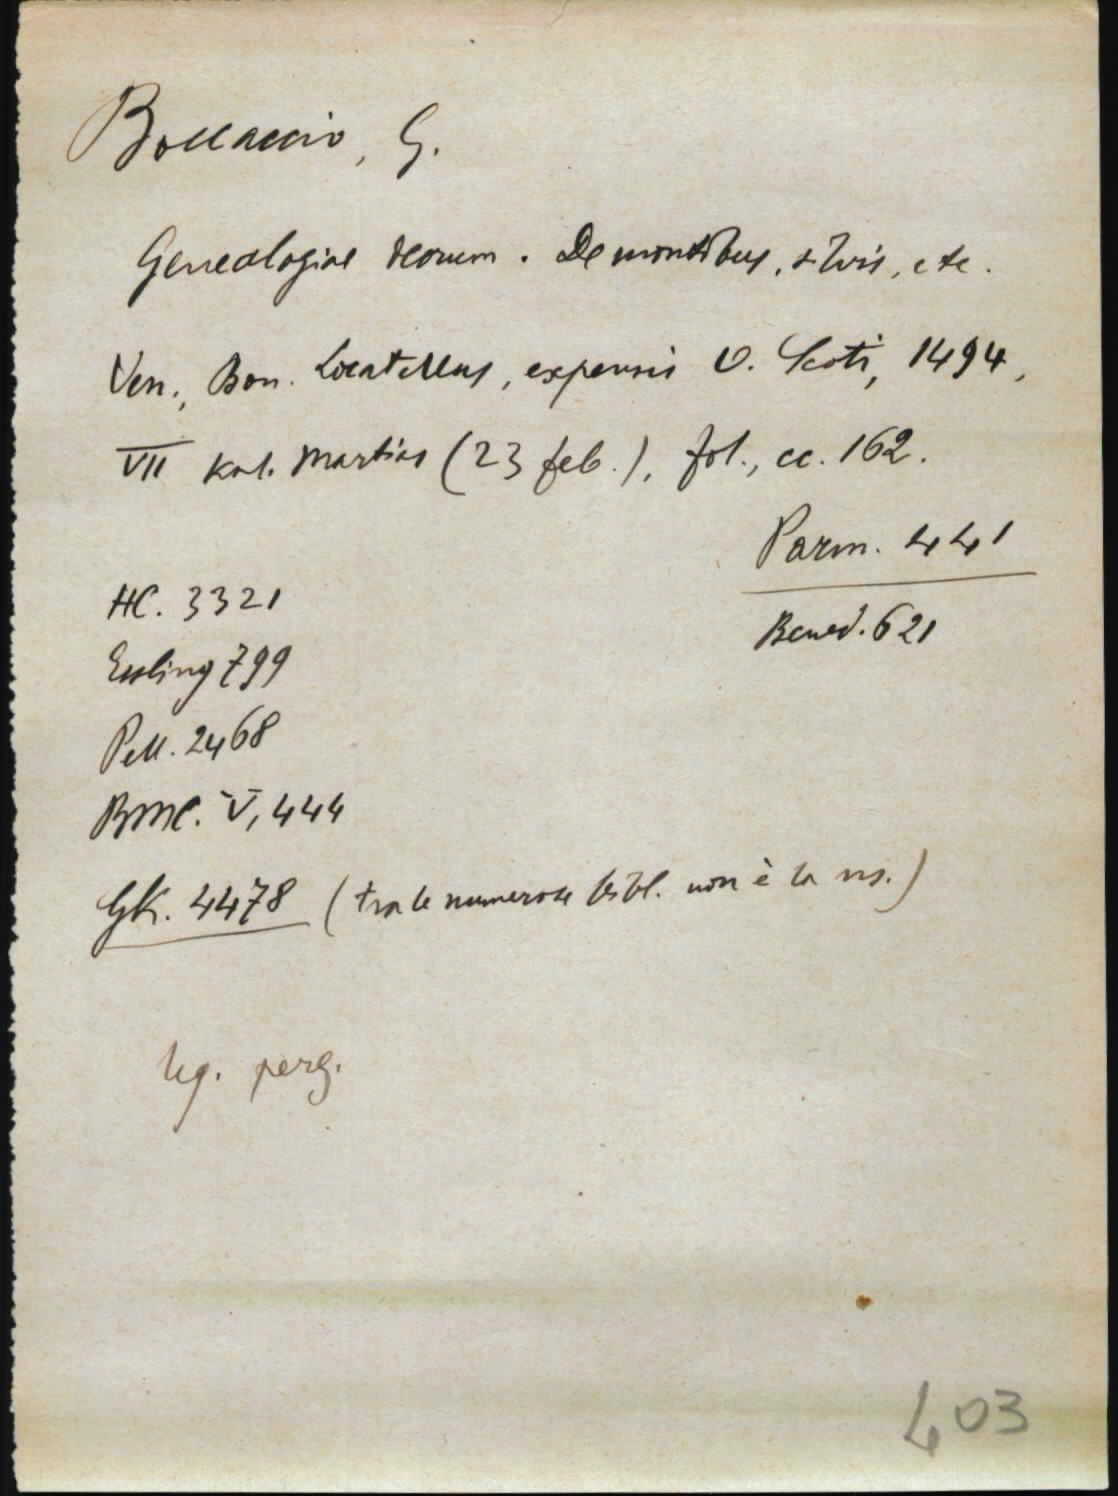 Boccaccio, G.
Genealogiae deorum. De montibus, silvis, etc.
Ven., Bon. Locatellus, expensis O. Scoti, 1494,
VII kal. Martias (23 feb.), fol., cc. 162.
Parm. 441
Bened. 621
HC. 3321
Essling 799
Pell. 2468
BMC. V, 444
GK. 4478 (tra le numerose bibl. non è la ns.)
leg. perg.
403